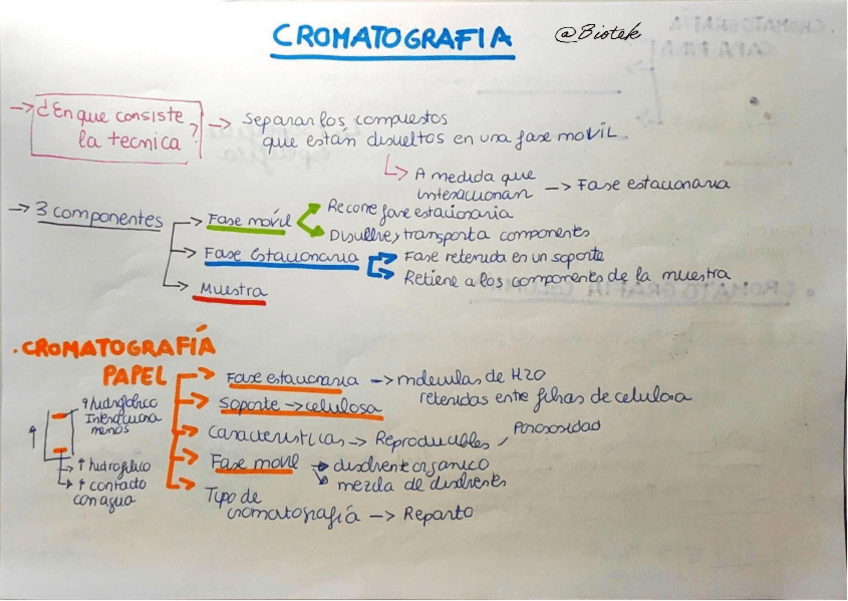 CROMATOGRAFIA
@Biotek
→ ¿En que consiste
la tecnica?
→ Separar los compuestos
que están disueltos en una fase movil.
↳ A medida que
interaccionan → Fase estacionaria
→ 3 componentes
→ Fase móvil
Recorre fase estacionaria
Disuelve y transporta componentes
→ Fase estacionaria
→ Fase retenida en un soporte
→ Retiene a los componentes de la muestra.
→ Muestra
. CROMATOGRAFÍA
PAPEL
→ Fase estacionaria → moleculas de H2O
retenidas entre fibras de celulosa
→ Soporte → celulosa
→ Características → Reproducibles, Porosidad
→ Fase movil → disolvente organico
→ mezcla de disolventes
→ Tipo de
cromatografía → Reparto
hidrofóbico
Interacciona
menos
↑
→ ↑ hidrofílico
↳ ↑ contacto
con agua
CROMATOGRAFÍA
CAPA FINA